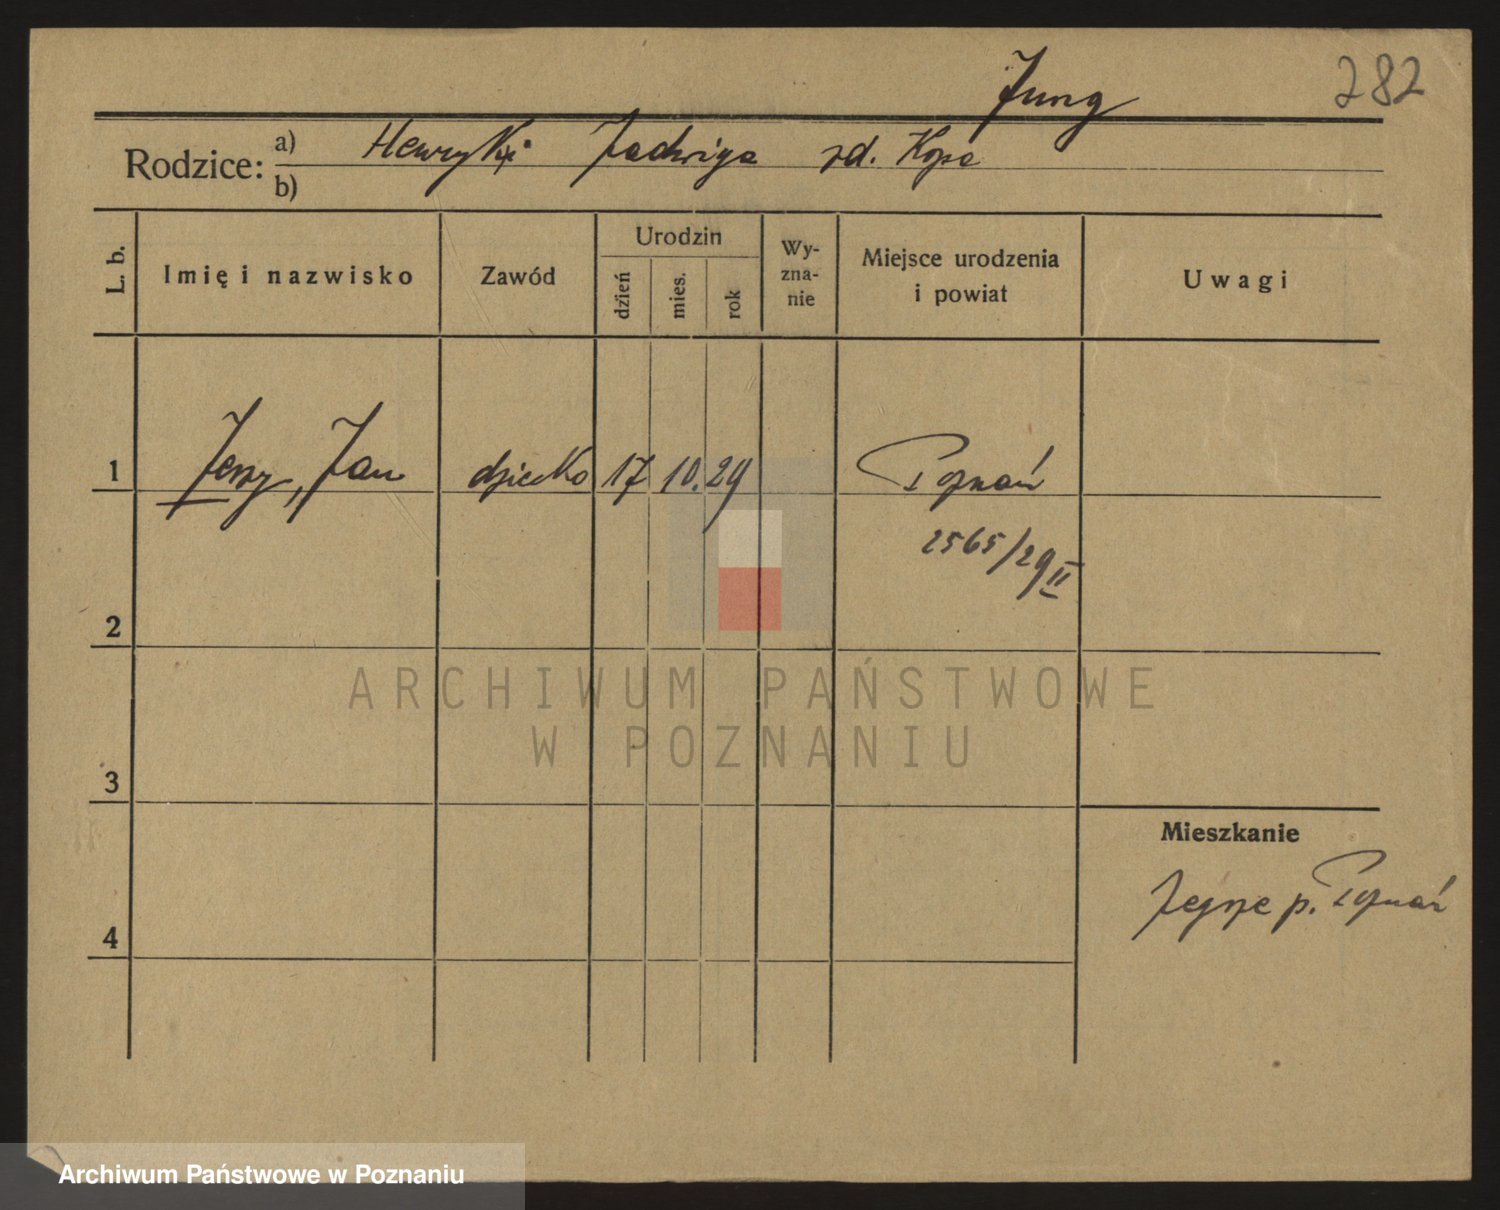 Jung
282
Rodzice: a) Henryk i Jadwiga zd. Kopa
b)
L. b. Imię i nazwisko Zawód Urodzin dzień mies. rok Wy-zna-nie Miejsce urodzenia i powiat Uwagi
1 Jerzy, Jan dziecko 17 10. 29 Poznań
2565/29 II
2
ARCHIWUM PAŃSTWOWE
W POZNANIU
3
Mieszkanie
p. Poznań
4
Archiwum Państwowe w Poznaniu